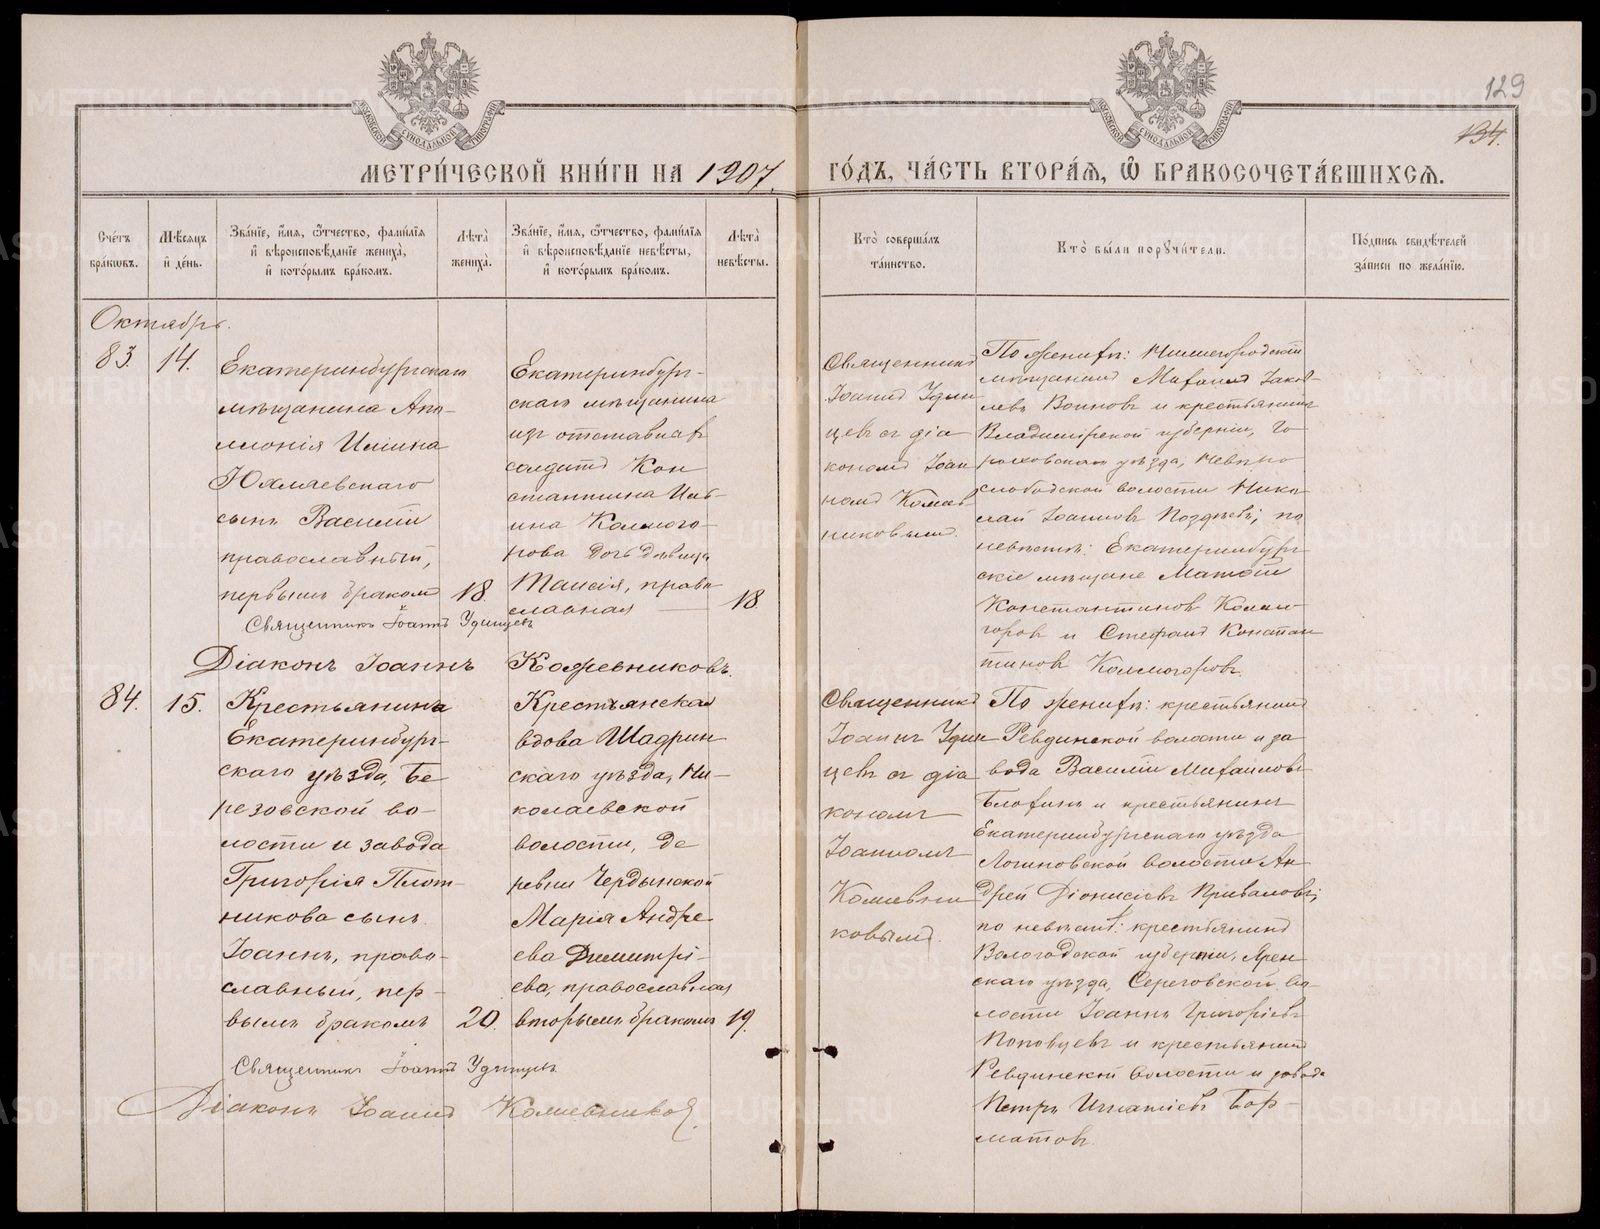 129
134.
МОСКОВСКОЙ СѴНОДАЛЬНОЙ ТИПОГРАФІИ
МОСКОВСКОЙ СѴНОДАЛЬНОЙ ТИПОГРАФІИ
МЕТРИ́ЧЕСКОЙ КНИ́ГИ НА 1907.
ГО́ДЪ, ЧА́СТЬ ВТОРА́Ѧ, Ѡ҆ БРАКОСОЧЕТА́ВШИХСѦ.
Сче́тъ
бра́кѡвъ.
Мѣ́сѧцъ
и҆ де́нь.
Зва́нїе, и҆́мѧ, ѻ҆́тчество, фами́лїѧ
и҆ вѣроисповѣ́данїе жениха̀,
и҆ кото́рымъ бра́комъ.
Лѣ́та̀
жениха̀.
Зва́нїе, и҆́мѧ, ѻ҆́тчество, фами́лїѧ
и҆ вѣроисповѣ́данїе невѣ́сты,
и҆ кото́рымъ бра́комъ.
Лѣ́та̀
невѣ́сты.
Кто̀ соверша́лъ
та́инство.
Кто̀ бы́ли порꙋчи́тели.
По́дпись свидѣ́телей
за́писи по жела́нїю.
Октябрь.
83.
14.
Екатеринбургскаго
мѣщанина Апо-
ллонія Иліина
сынъ Василій
православный,
первымъ бракомъ
18.
Екатеринбург-
скаго мѣщанина
изъ отставныхъ
солдатъ Кон
стантина Ива-
нова Колмого-
рова дочь девица
Таисія, право
славная
18
Священникъ
Іоаннъ Удин
цевъ съ діа
кономъ Іоан
номъ Кожев
никовымъ.
По женихѣ: Нижегородскій
мѣщанинъ Михаилъ Іаков-
левъ Воиновъ и крестьянинъ
Владимірской губерніи, Го
роховскаго уѣзда,
слободской волости Нико
лай Іоанновъ Поздѣевъ; по
невѣстѣ: Екатеринбург
скіе мѣщане Матѳій
Константиновъ Колмо
горовъ и Стефанъ Констан
тиновъ Колмогоровъ.
Священникъ Іоаннъ Удинцевъ
Діаконъ Іоаннъ Кожевниковъ.
84.
15.
Крестьянина
Екатеринбург-
скаго уѣзда, Бе
резовской во-
лости и завода
Григорія Плот-
никова сынъ
Іоаннъ, право-
славный, пер-
вымъ бракомъ
20.
Крестьянская
вдова Шадрин
скаго уѣзда, Ни-
колаевской
волости, де
ревни Чердынской
Марія Андре
ева Димитрі-
ева, православная
вторымъ бракомъ
19.
Священникъ
Іоаннъ Удин
цевъ съ діа
кономъ
Іоанномъ
Кожевни
ковымъ.
По женихѣ: крестьянинъ
Ревдинской волости и за
вода Василій Михаиловъ
Блохинъ и крестьянинъ
Екатеринбургскаго уѣзда
Логиновской волости Ан
дрей Діонисіевъ Приваловъ;
по невѣстѣ: крестьянинъ
Вологодской губерніи, Ярен
скаго уѣзда, Сереговской во
лости Іоаннъ Григоріевъ
Поповцевъ и крестьянинъ
Ревдинской волости и завода
Петръ Игнатіевъ Бар-
матовъ.
Священникъ Іоаннъ Удинцевъ
Діаконъ Іоаннъ Кожевниковъ.